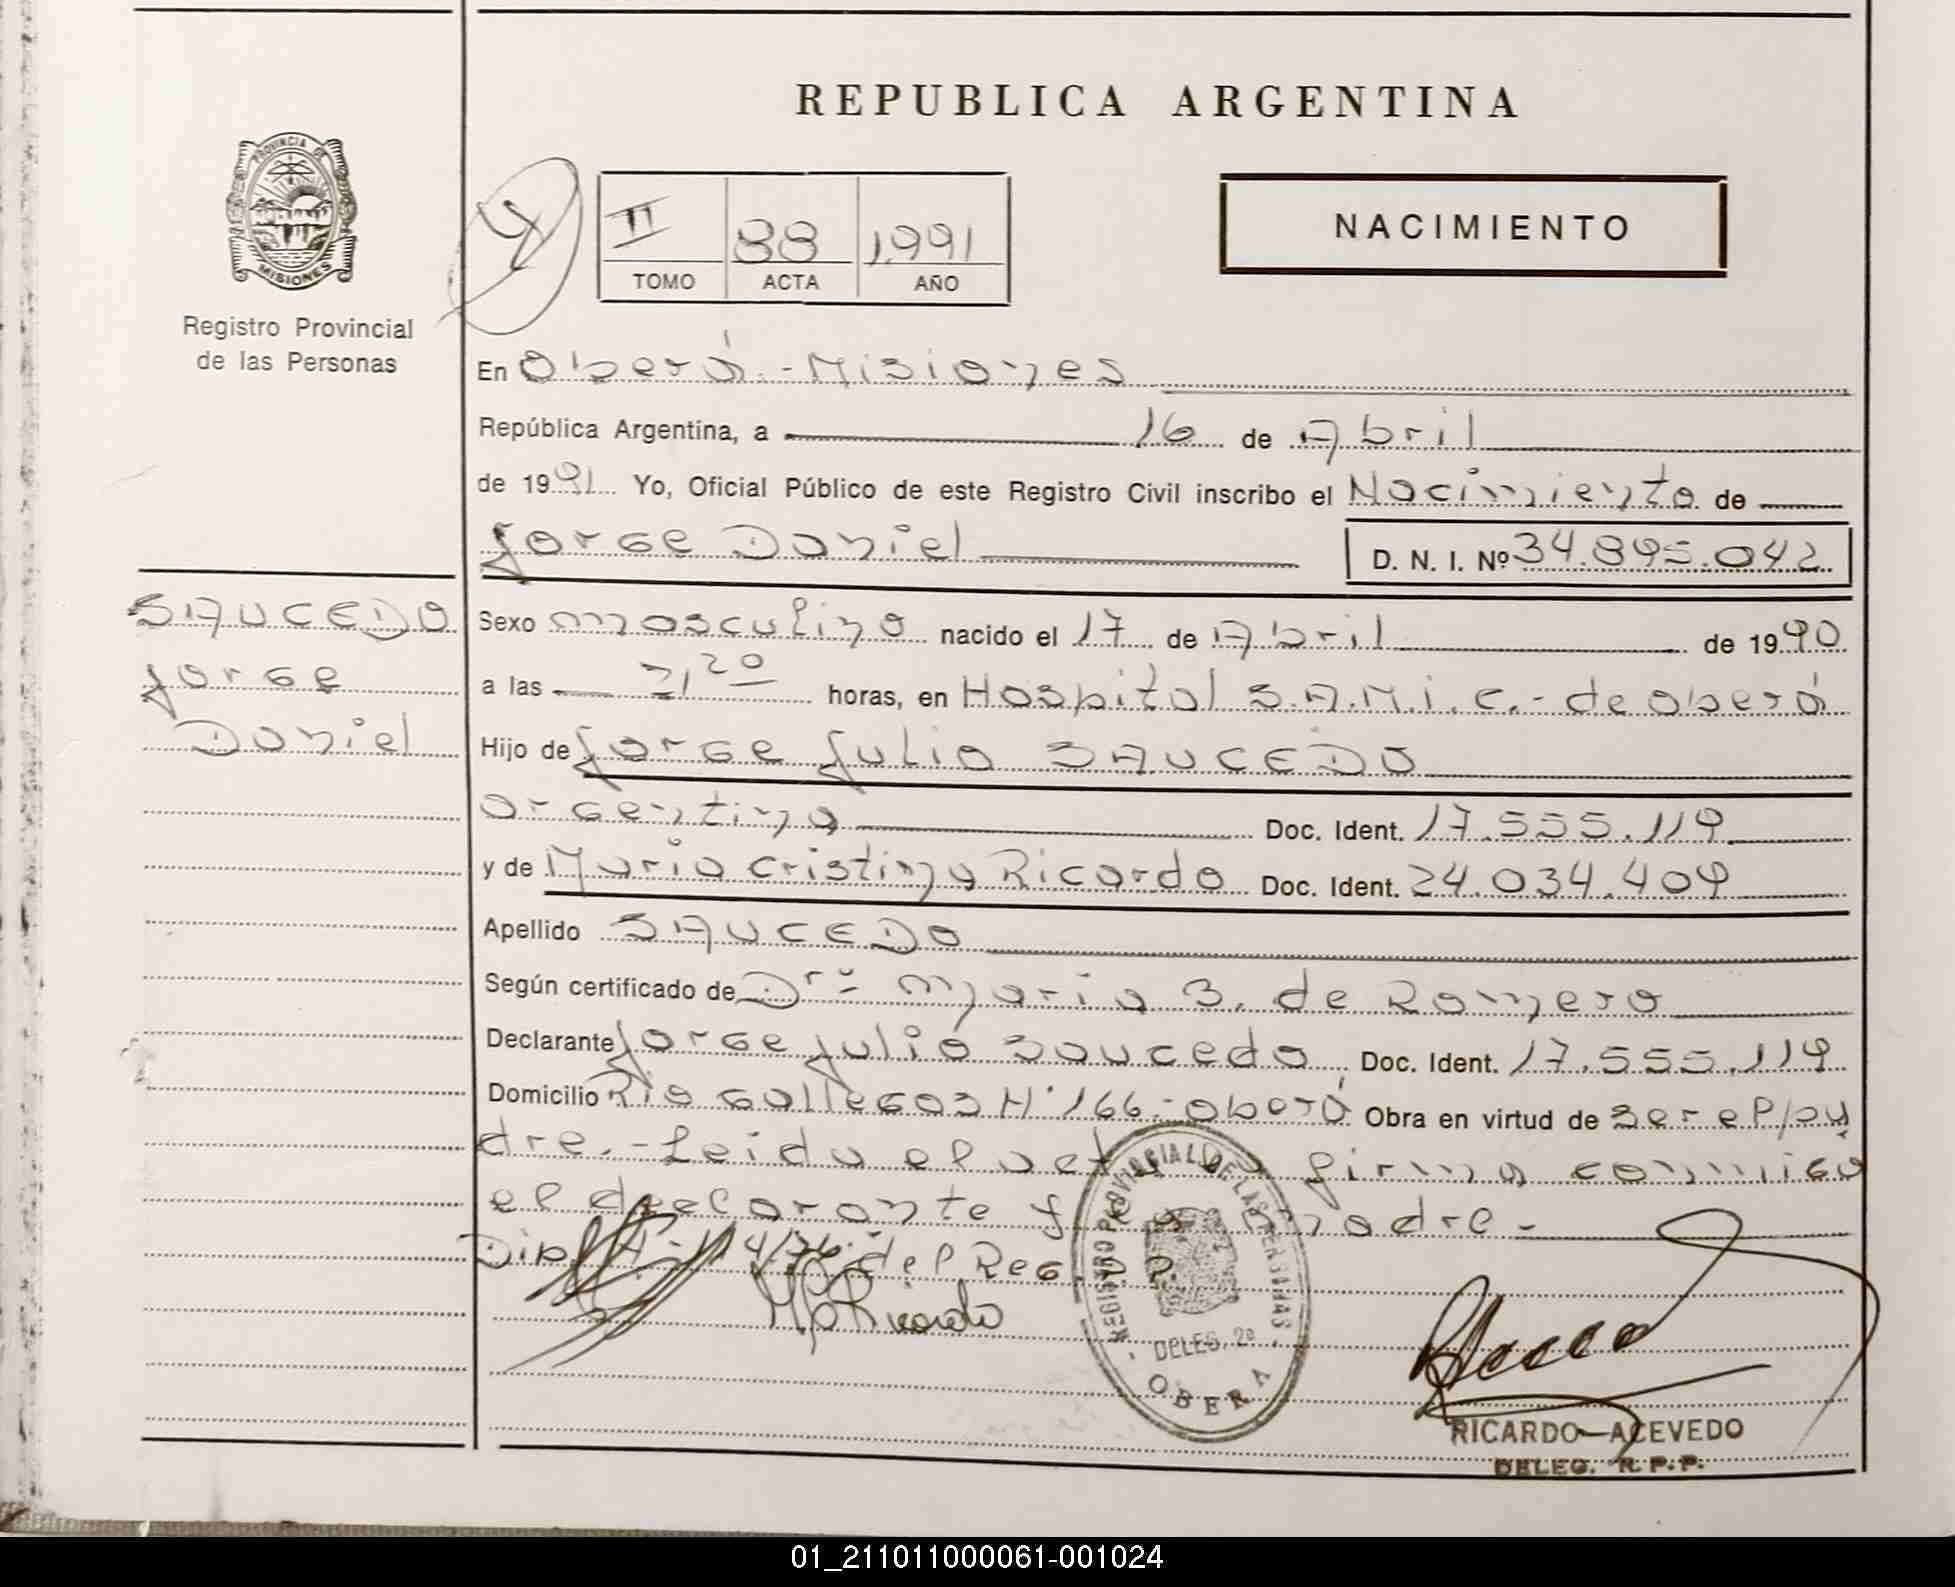 REPUBLICA ARGENTINA
PROVINCIA DE
MISIONES
Registro Provincial
de las Personas
II 88 1.991
TOMO ACTA AÑO
NACIMIENTO
En Oberá.-Misiones
República Argentina, a 16 de Abril
de 1991 Yo, Oficial Público de este Registro Civil inscribo el Nacimiento de
Jorge Daniel D. N. I. Nº 34.895.042
SAUCEDO
Jorge
Daniel
Sexo masculino nacido el 17 de Abril de 1990
a las 21,20 horas, en Hospital S.A.M.I.C.- de Oberá
Hijo de Jorge Julio SAUCEDO
argentino Doc. Ident. 17.555.119
y de Maria Cristina Ricardo Doc. Ident. 24.034.409
Apellido SAUCEDO
Según certificado de Dra Maria B. de Romero
Declarante Jorge Julio Saucedo Doc. Ident. 17.555.119
Domicilio Rio Gallegos N° 166.-Oberá Obra en virtud de ser el pa
dre.-Leida el acta la firma conmigo
el declarante y la madre.-
Disp. 114/76 del Reg. P. P.
Ricardo
REGISTRO PROVINCIAL DE LAS PERSONAS
DELEG. 2ª
OBERA
RICARDO ACEVEDO
DELEG. R.P.P.
01_211011000061-001024